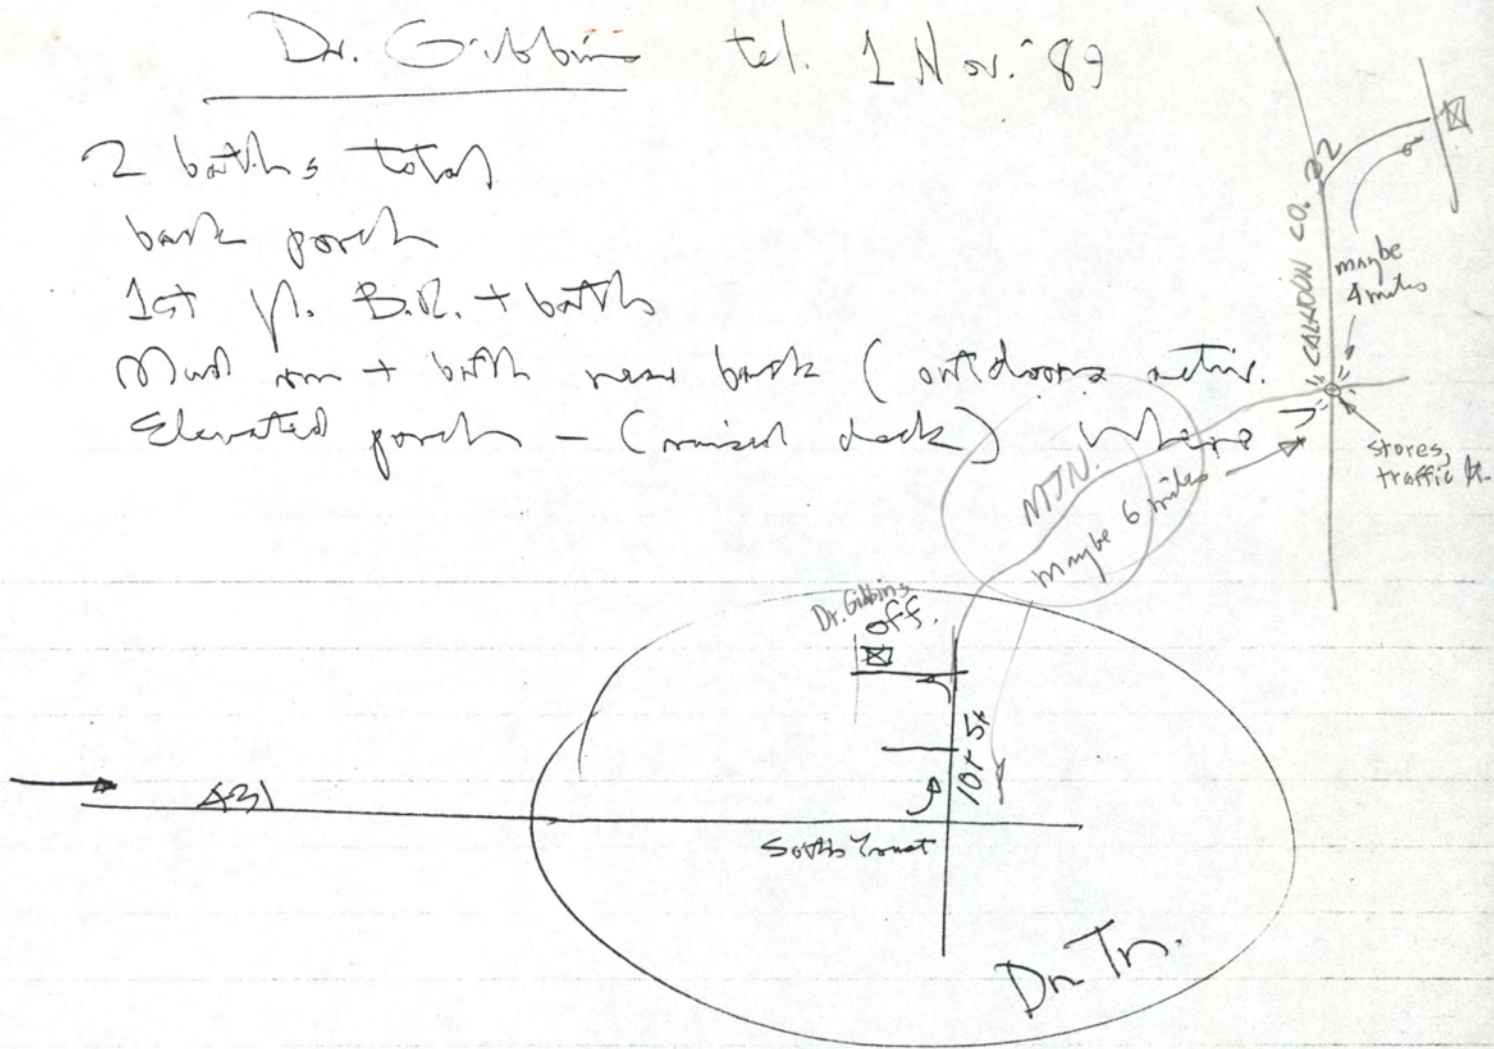 Dr. Gibbins tel. 1 Nov. '89
2 baths total
back porch
1st fl. B.R. + baths
Mud rm + bath near back (outdoors activ.
Elevated porch - (raised deck) Where
CALHOUN CO. 32
maybe
4 miles
stores,
traffic lt.
MTN.
maybe 6 miles
Dr. Gibbins
off.
10th St
431
South Trust
Dn Tn.